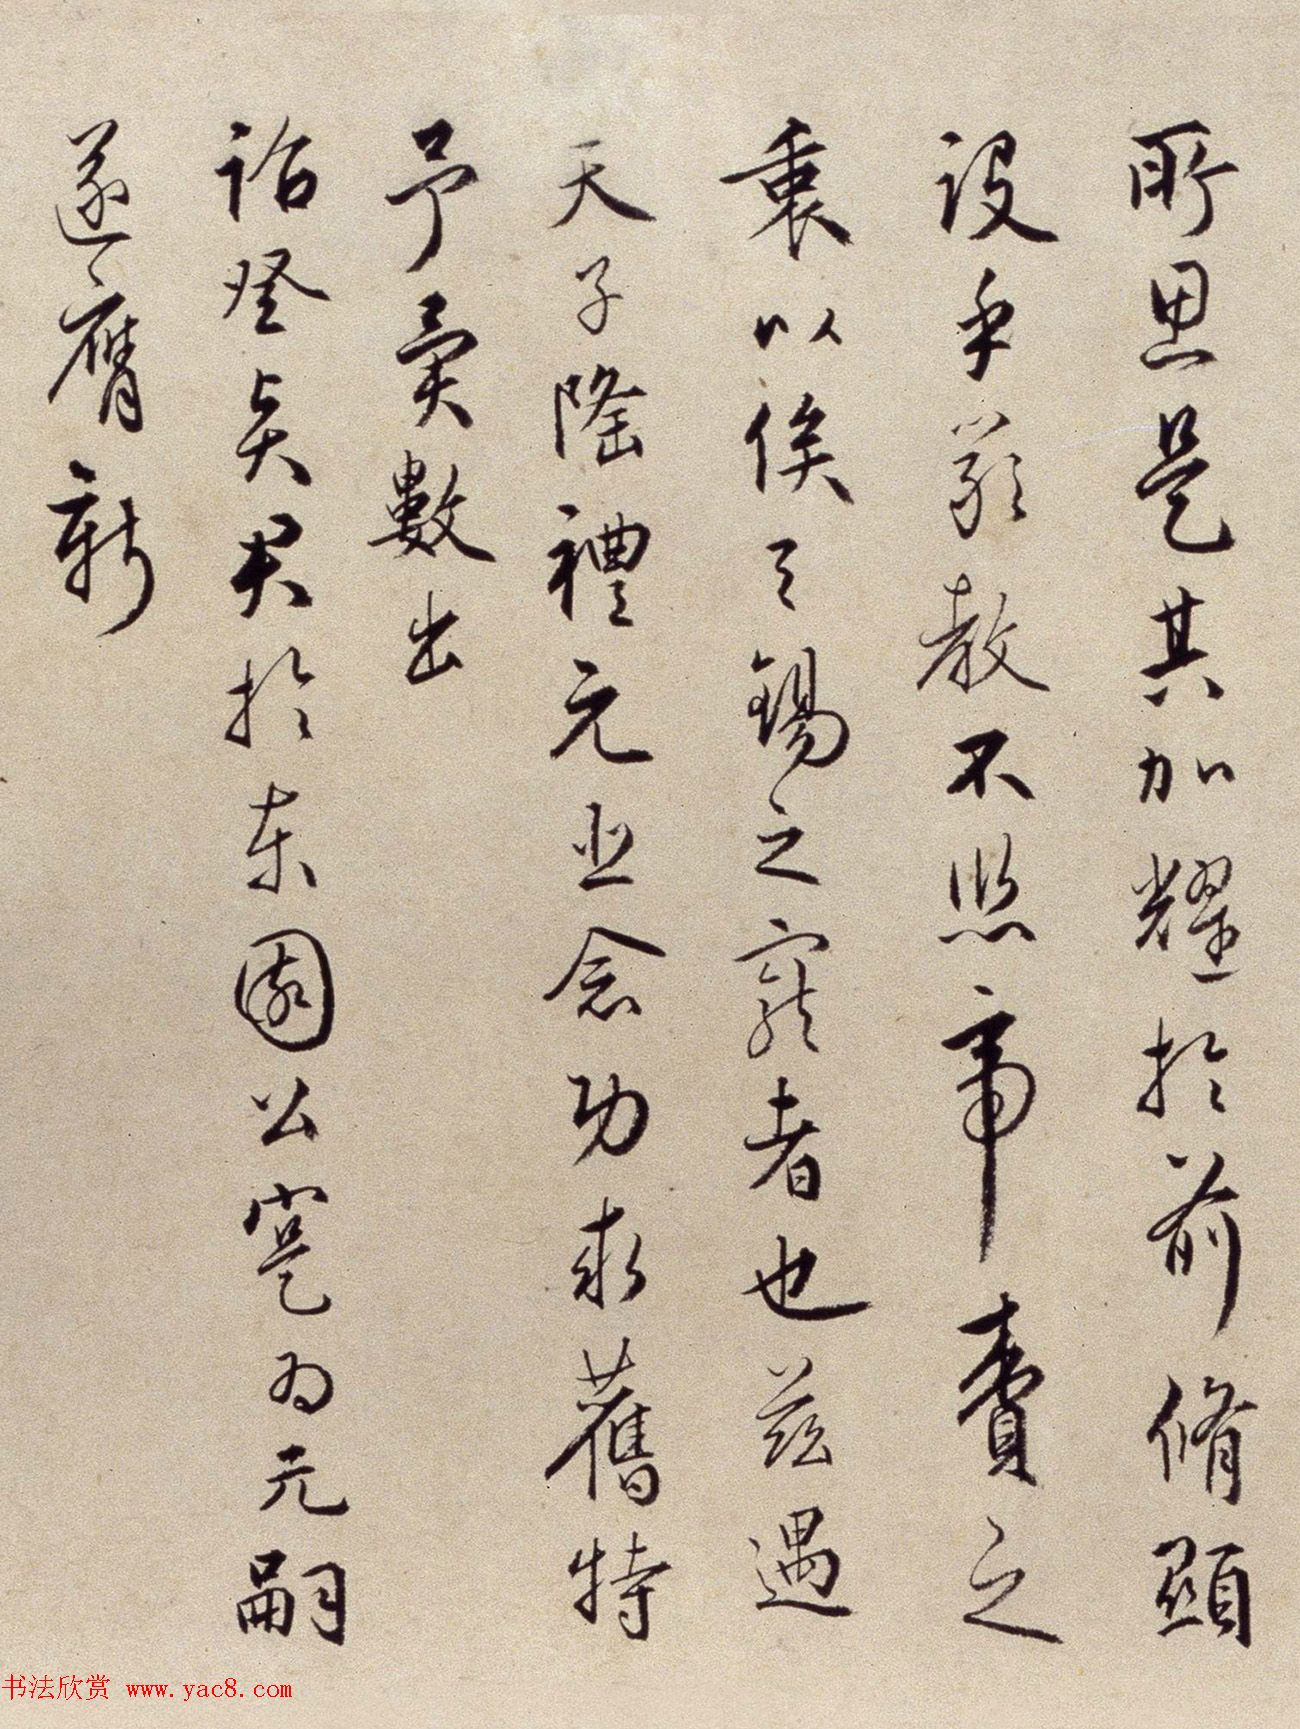 所思是其加耀於前脩顯
設乎嚴教不然帝賚之
衷以俟天錫之寵者也茲遇
天子隆禮元臣念功求舊特
予爽數出
詔登吳君於東園公寔為元嗣
遂膺新
书法欣赏 www.yac8.com